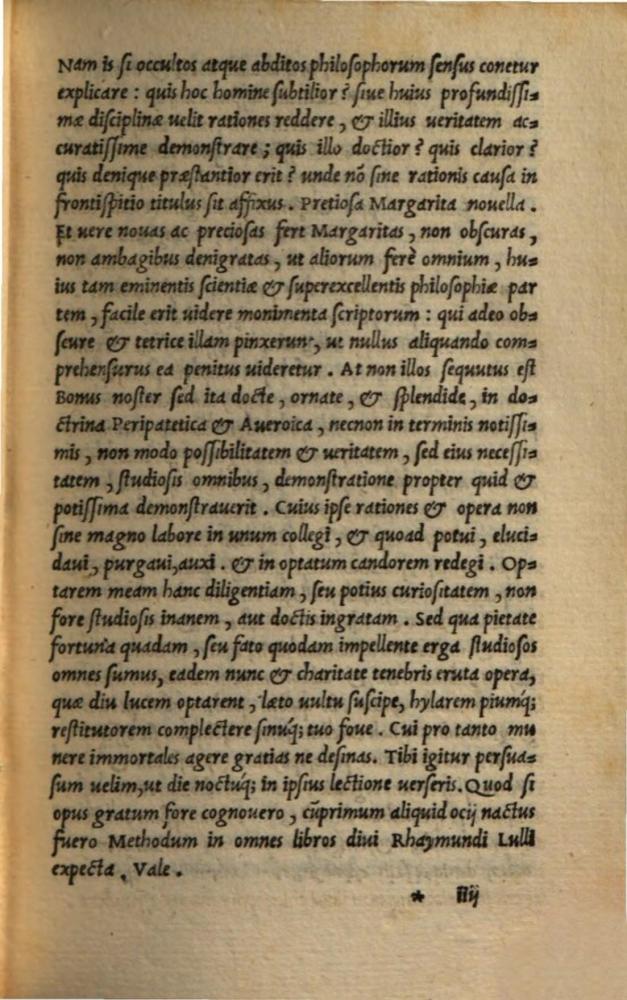 Nam is si occultos atque abditos philosophorum sensus conetur
explicare : quis hoc homine subtilior ? siue huius profundissi=
mæ disciplinæ uelit rationes reddere , & illius ueritatem ac=
curatissime demonstrare ; quis illo doctior ? quis clarior ?
quis denique præstantior erit ? unde nō sine rationis causa in
frontispitio titulus sit affixus . Pretiosa Margarita nouella .
Et uere nouas ac preciosas fert Margaritas , non obscuras ,
non ambagibus denigratas , ut aliorum ferè omnium , hu=
ius tam eminentis scientiæ & superexcellentis philosophiæ par
tem , facile erit uidere monimenta scriptorum : qui adeo ob=
scure & tetrice illam pinxerunt , ut nullus aliquando com=
prehensurus ea penitus uideretur . At non illos sequutus est
Bonus noster sed ita docte , ornate , & splendide , in do=
ctrina Peripatetica & Aueroica , necnon in terminis notissi=
mis , non modo possibilitatem & ueritatem , sed eius necessi=
tatem , studiosis omnibus , demonstratione propter quid &
potissima demonstrauerit . Cuius ipse rationes & opera non
sine magno labore in unum collegi , & quoad potui , eluci=
daui , purgaui,auxi . & in optatum candorem redegi . Op=
tarem meam hanc diligentiam , seu potius curiositatem , non
fore studiosis inanem , aut doctis ingratam . Sed qua pietate
fortuna quadam , seu fato quodam impellente erga studiosos
omnes sumus, eadem nunc & charitate tenebris eruta opera,
quæ diu lucem optarent , læto uultu suscipe, hylarem piumq́;
restitutorem complectere sinuq́; tuo foue . Cui pro tanto mu
nere immortales agere gratias ne desinas. Tibi igitur persua=
sum uelim,ut die noctuq́; in ipsius lectione uerseris. Quod si
opus gratum fore cognouero , cūprimum aliquid ocij nactus
fuero Methodum in omnes libros diui Rhaymundi Lulli
expecta . Vale .
* iiij